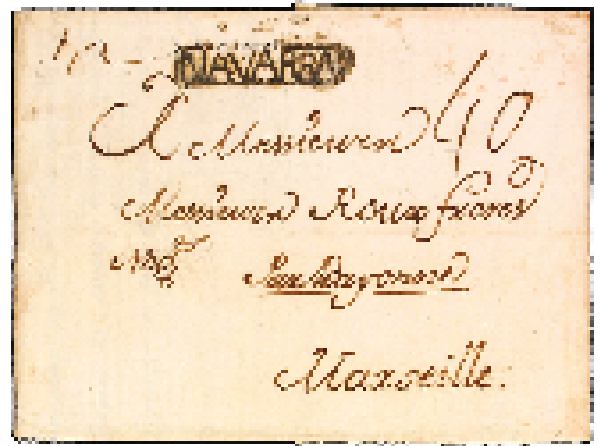 NAVARRA
A Messieurs 40
Messieurs Roux freres
Nég
Par Bayonne
Marseille.